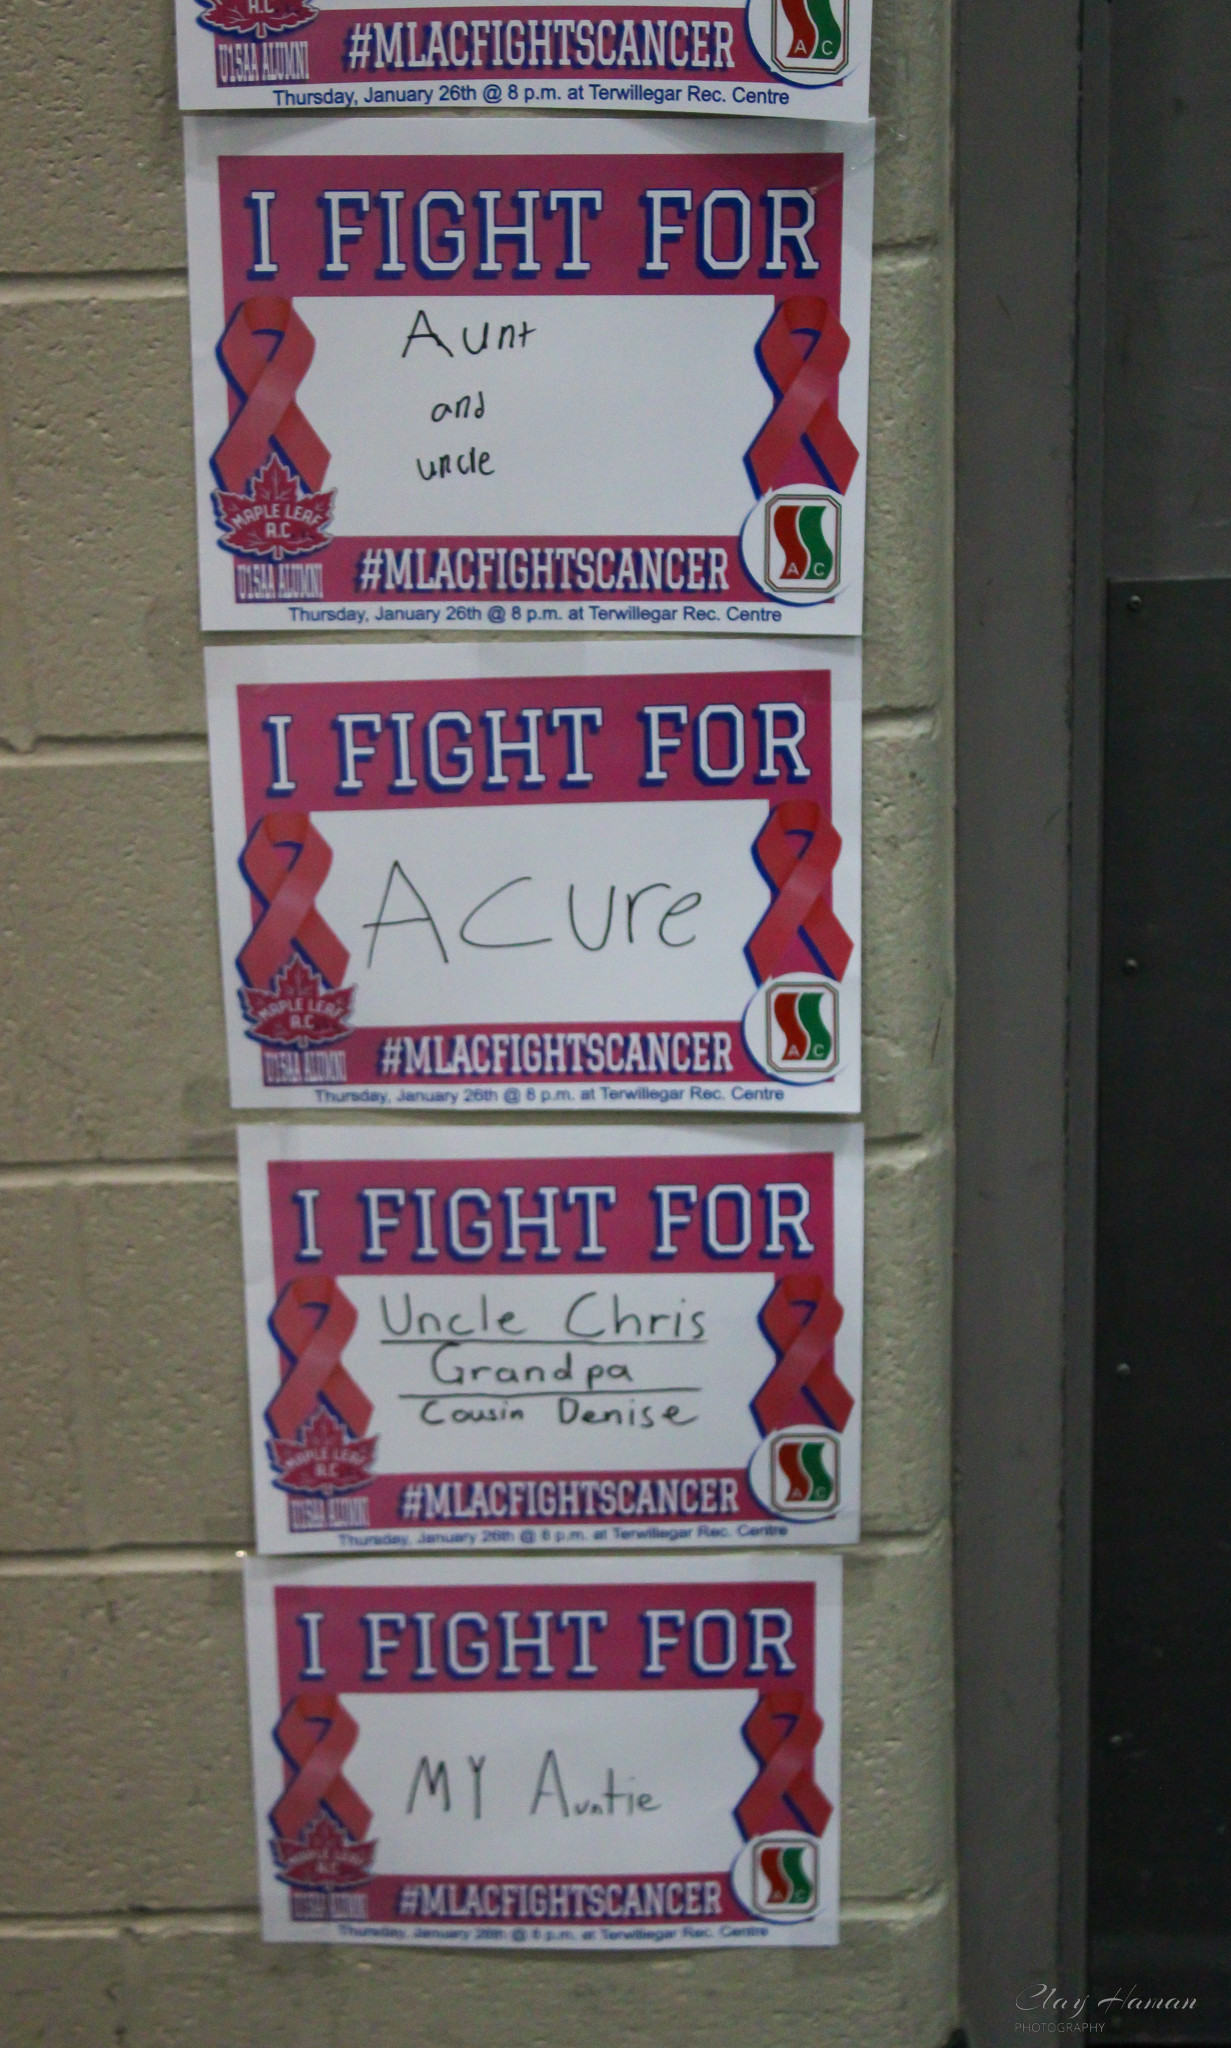 A.C
U15AA ALUMNI
#MLACFIGHTSCANCER
A C
Thursday, January 26th @ 8 p.m. at Terwillegar Rec. Centre
I FIGHT FOR
Aunt
and
uncle
MAPLE LEAF
A.C
U15AA ALUMNI
#MLACFIGHTSCANCER
A C
Thursday, January 26th @ 8 p.m. at Terwillegar Rec. Centre
I FIGHT FOR
A Cure
MAPLE LEAF
A.C
U15AA ALUMNI
#MLACFIGHTSCANCER
A C
Thursday, January 26th @ 8 p.m. at Terwillegar Rec. Centre
I FIGHT FOR
Uncle Chris
Grandpa
Cousin Denise
MAPLE LEAF
A.C
U15AA ALUMNI
#MLACFIGHTSCANCER
A C
Thursday, January 26th @ 8 p.m. at Terwillegar Rec. Centre
I FIGHT FOR
MY Auntie
MAPLE LEAF
A.C
U15AA ALUMNI
#MLACFIGHTSCANCER
A C
Thursday, January 26th @ 8 p.m. at Terwillegar Rec. Centre
Clay Haman
PHOTOGRAPHY